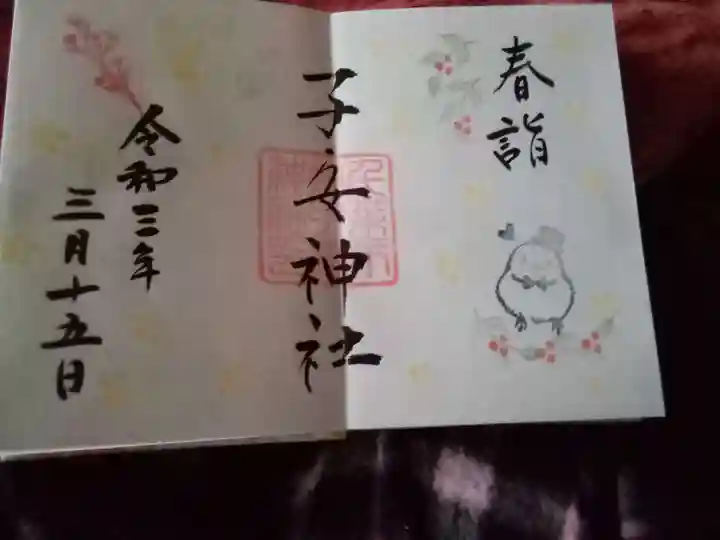 春詣
子安神社
令和三年
三月十五日